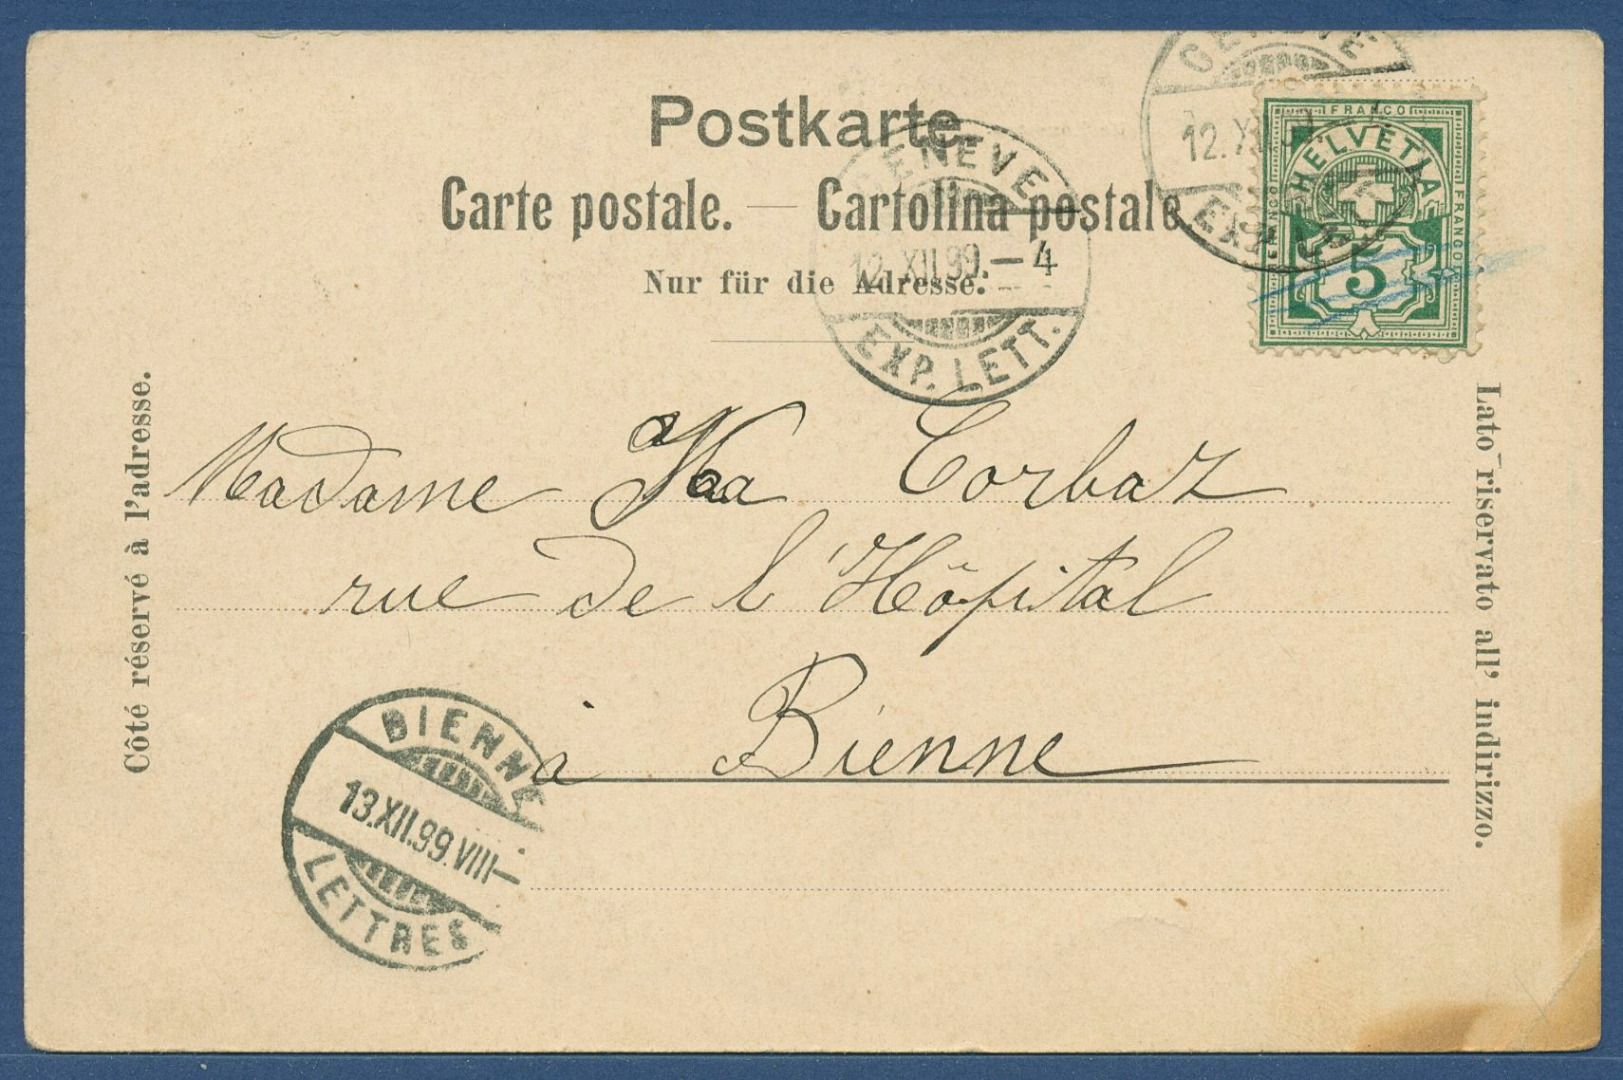 Postkarte.
Carte postale. — Cartolina postale.
Nur für die Adresse.
GENÈVE
12.XII.99.–4
EXP. LETT.
GENÈVE
12.XII.99
EXP. LETT.
FRANCO
FRANCO
FRANCO
HELVETIA
5
Côté réservé à l'adresse.
Lato riservato all' indirizzo.
Madame Corbaz
rue de l'Hôpital
à Bienne
BIENNE
13.XII.99.VIII–
LETTRES